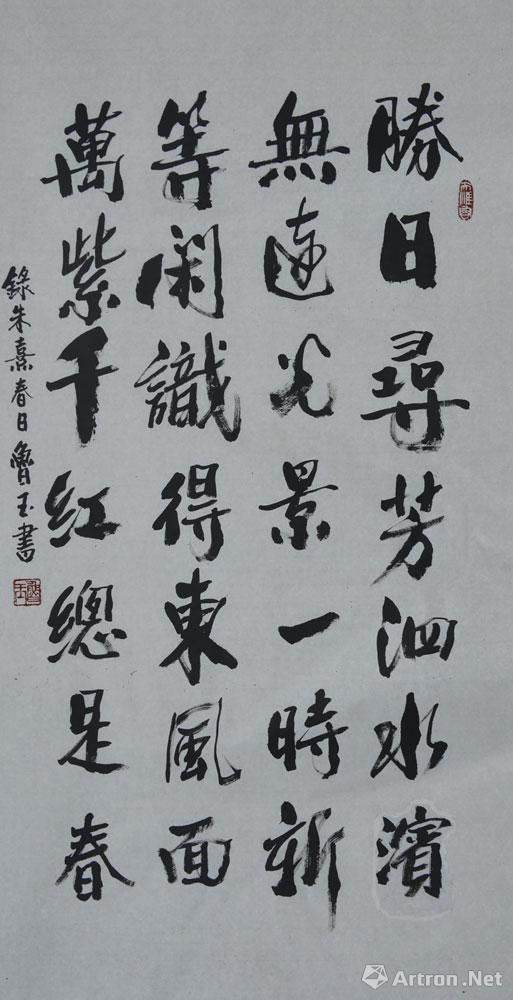 勝日尋芳泗水濱
無邊光景一時新
等閑識得東風面
萬紫千紅總是春
錄朱熹春日魯玉書
Artron.Net